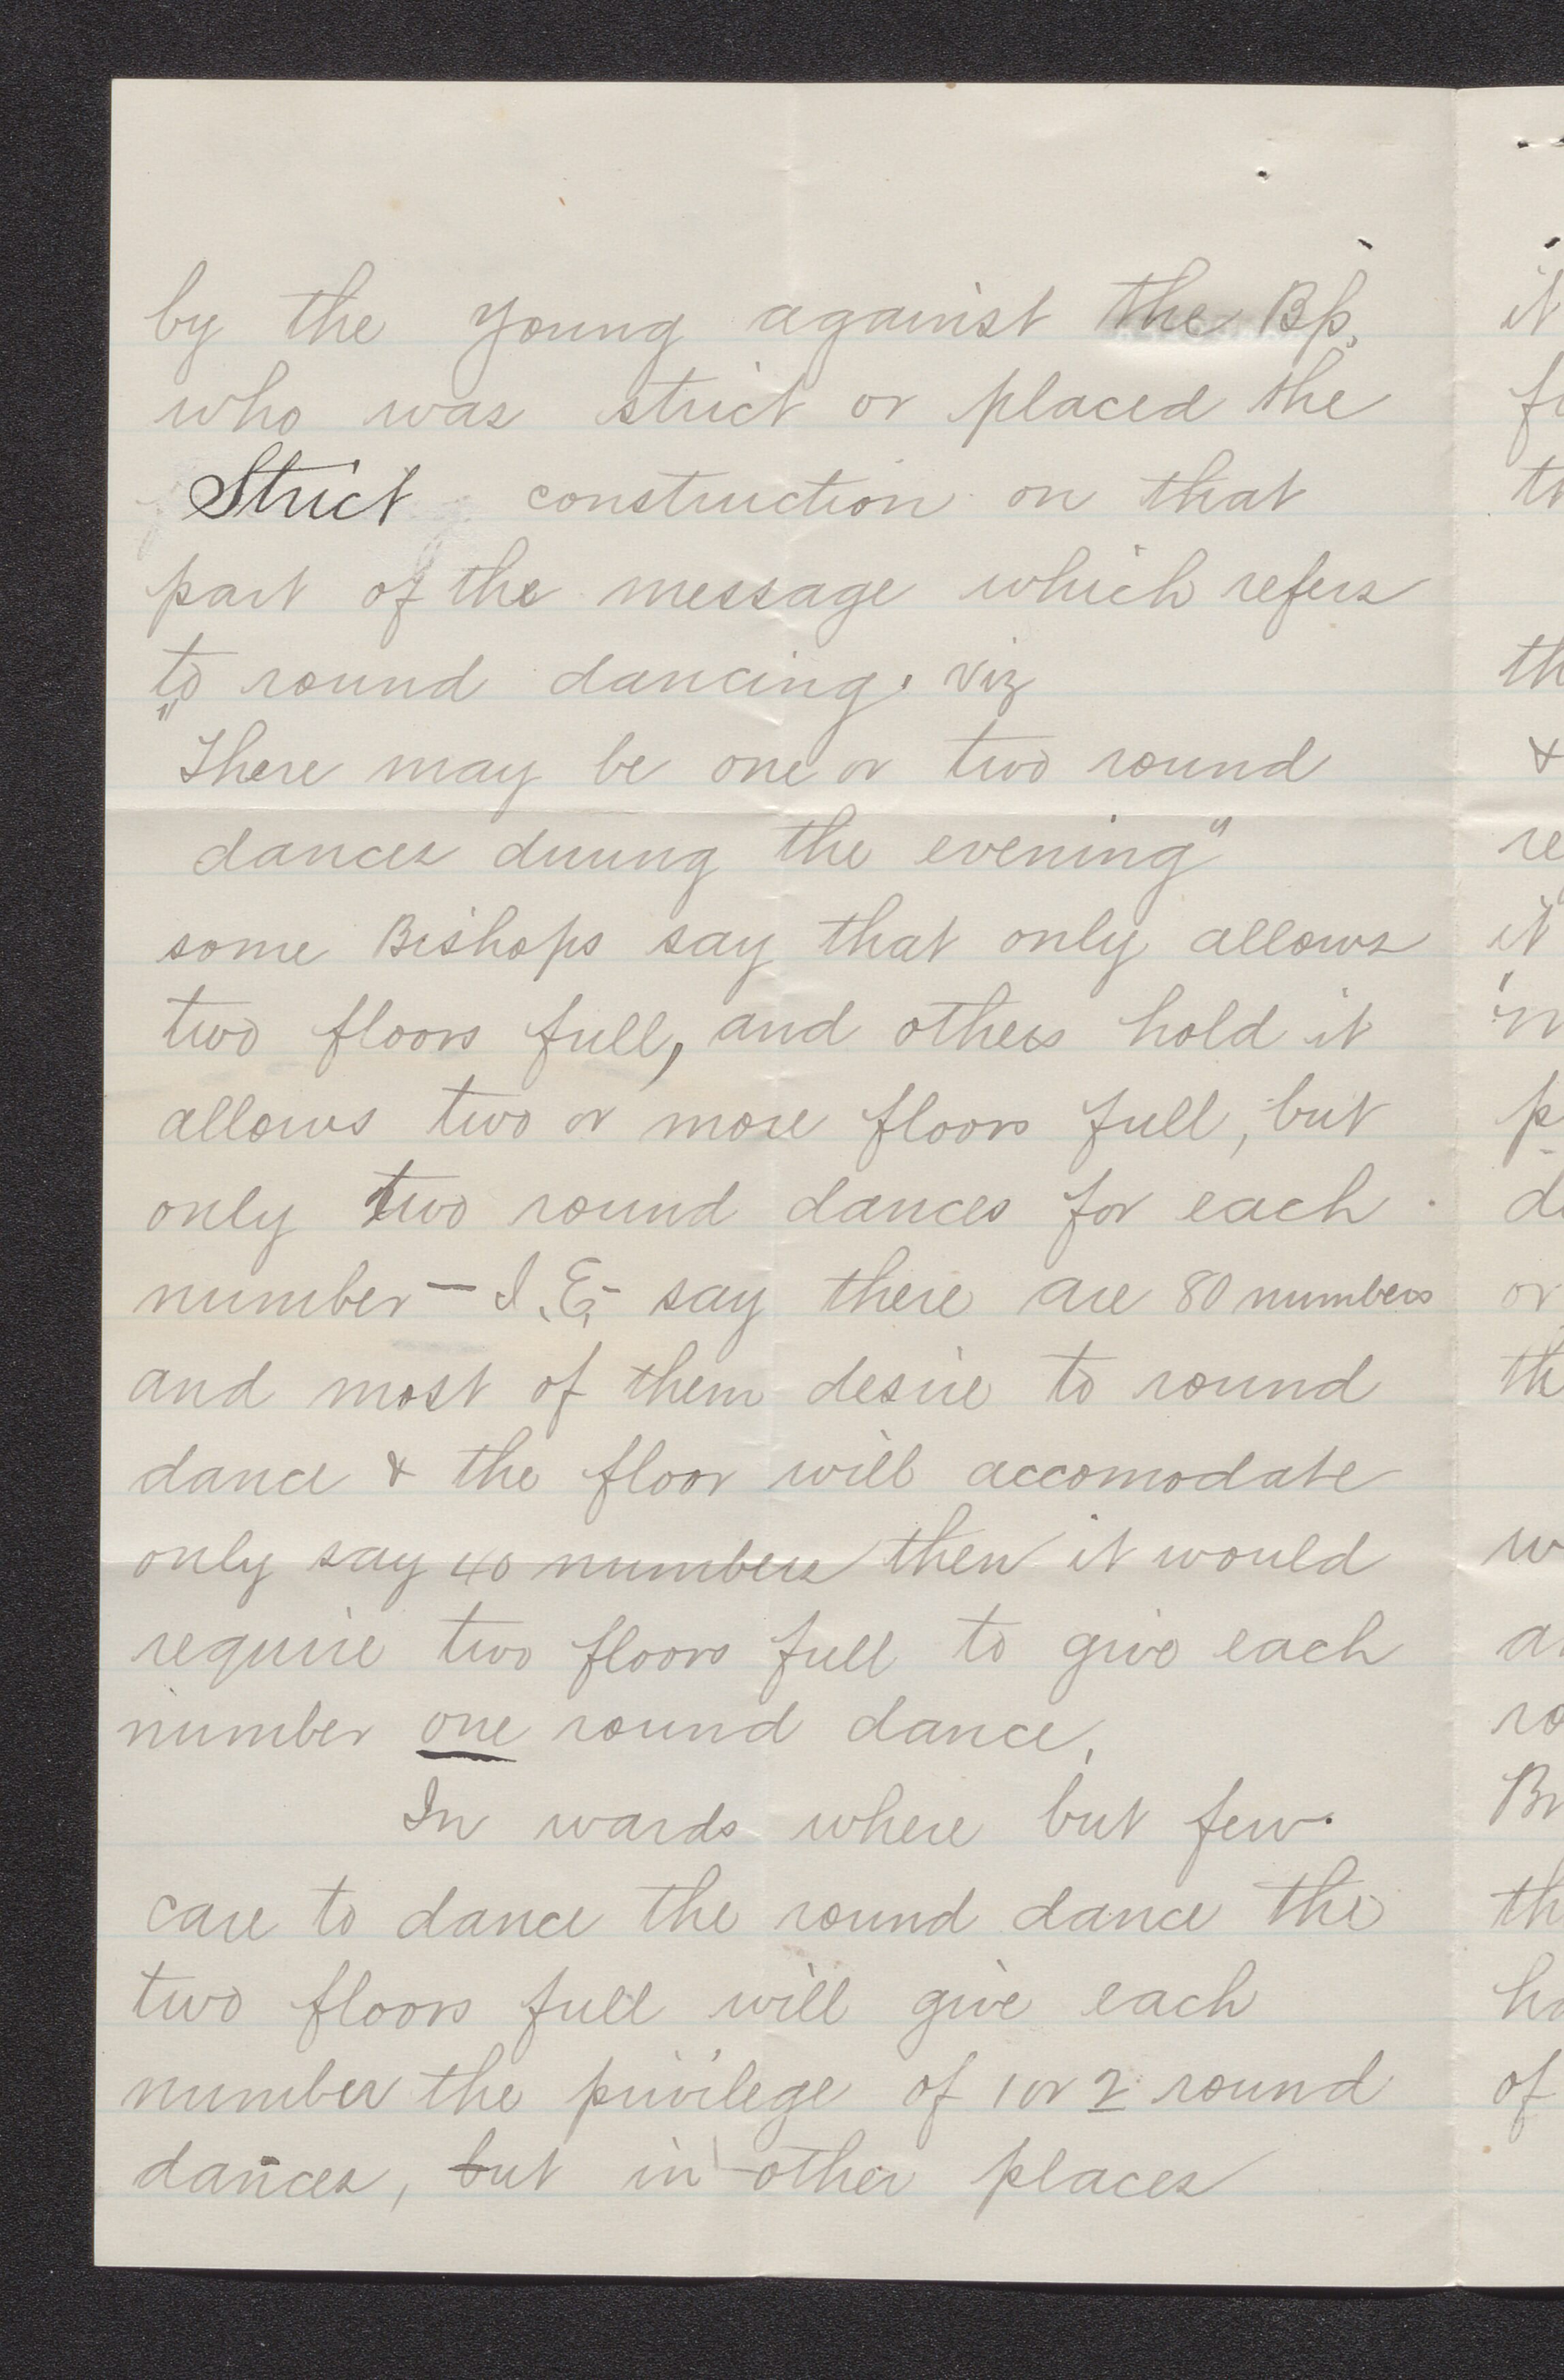 by the young against the Bp.
who was strict or placed the
Strict construction on that
part of the message which refers
to round dancing. viz
"There may be one or two round
dances during the evening"
some Bishops say that only allows
two floors full, and others hold it
allows two or more floors full, but
only two round dances for each
number — I.E, say there are 80 numbers
and most of them desire to round
dance & the floor will accomodate
only say 40 numbers then it would
require two floors full to give each
number one round dance.
In wards where but few
care to dance the round dance the
two floors full will give each
number the privilege of 1 or 2 round
dances, but in other places
it
th
&
re
it
p
or
th
w
th
of